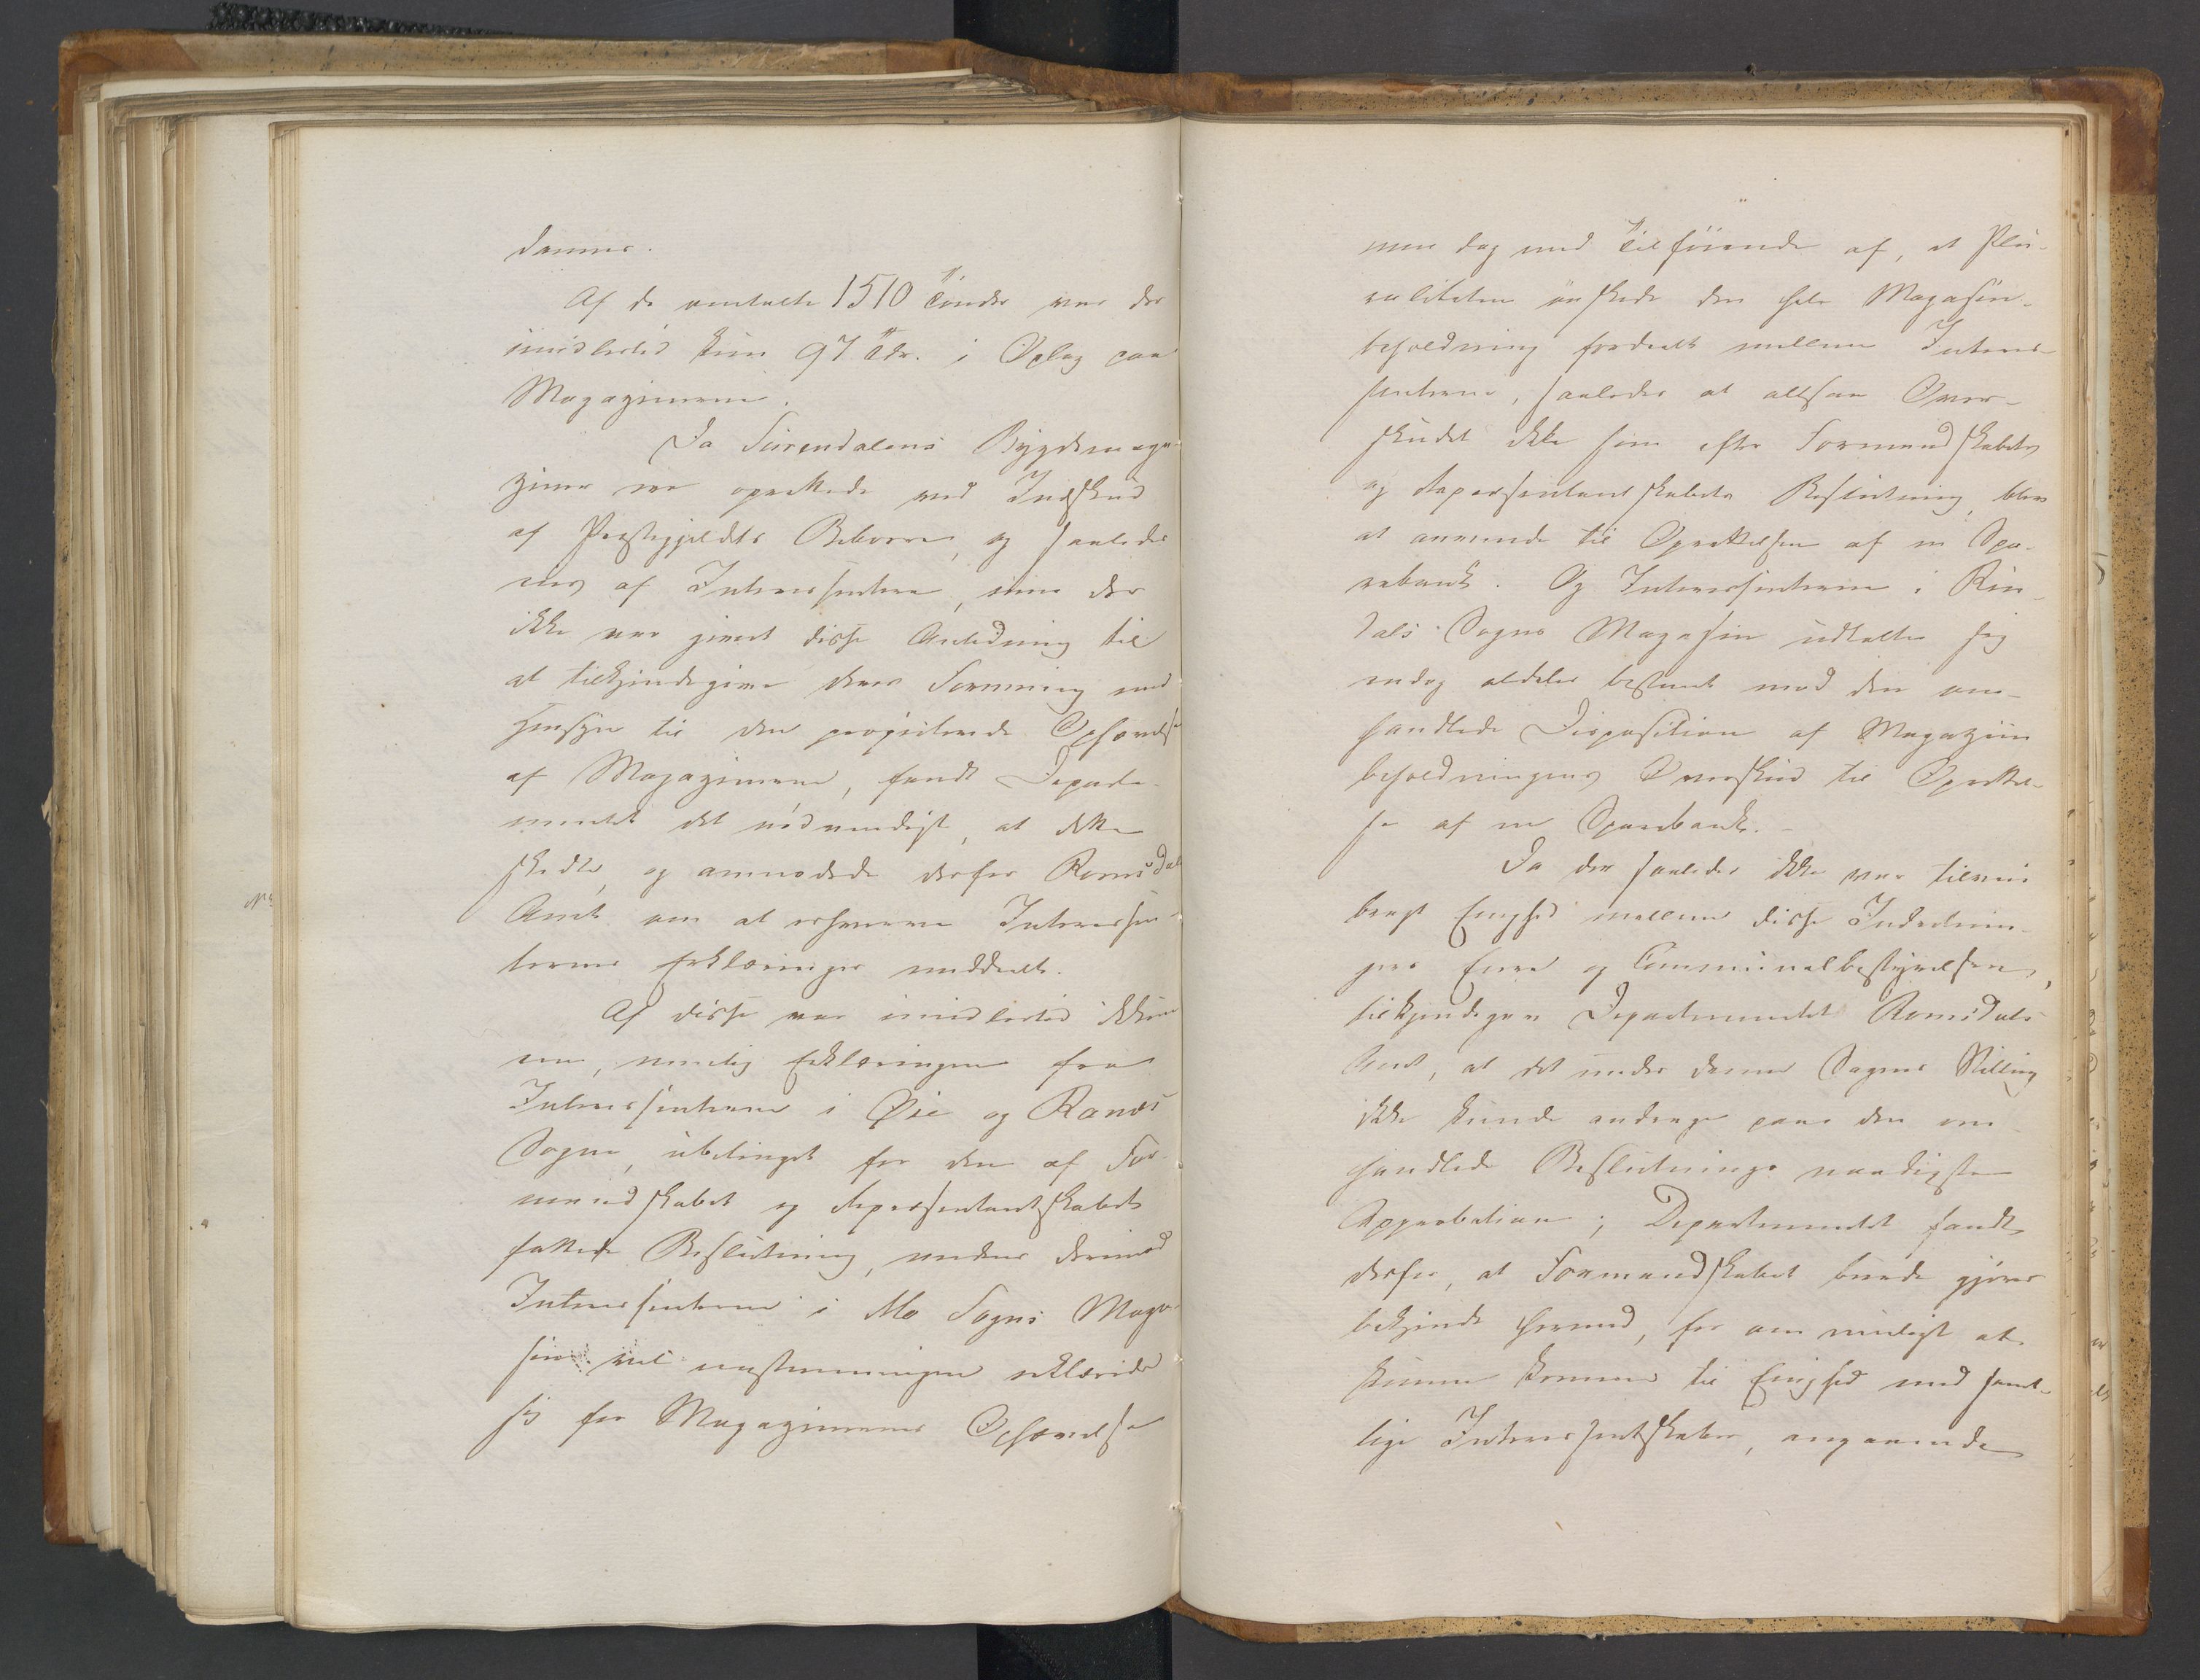 dannes.
Af de anntalte 1510 Tönder var der
imidlertid kun 97 Tdr. i Oplag paa
Magazinerne.
Da Surendalens Bygdemaga-
ziner var oprettede ved Indskud
af Præstegjeldets Beboere, og saaledes
eies af Interessentere, men der
ikke var givet disse Anledning til
at tilkjendegive deres Formening med
Hensyn til den projecterede Ophævelse
af Magazinerne, fandt Departe-
mentet det nødvendigt, at dette
skede, og anmodede derfor Romsdals
Amt om at erhverve Interessen-
ternes Erklæringer meddeelt.
Af disse var imidlertid ikkun
een, nemlig Erklæringen fra
Interessenterne i Øie og Ranæs
Sogne, ubetinget for den af For-
mandskabet og Repræsentantskabet
fattede Beslutning, medens derimod
Interessenterne i Mo Sogns Maga-
sin vel eenstemmigen erklærede
sig for Magazinernes Ophævelse
men dog med Tilföiende af, at Plu-
raliteten önskede den hele Magasin-
beholdning fordeelt mellem Interes-
senterne, saaledes at altsaa Over-
skudet ikke som efter Formandskabets
og Repræsentantskabets Beslutning, blev
at anvende til Oprettelsen af en Spa-
rebank. Og Interessenterne i Rin-
dals Sogns Magasin udtalte sig
endog aldeles bestemt mod den om-
handlede Disposition af Magaziin
beholdningens Overskud til Oprettel-
se af en Sparebank.-
Da der saaledes ikke var tilveie
bragt Enighed mellem disse Indretnin-
gers Eiere og Communalbestyrelsen,
tilkjendegav Departementet Romsdals
Amt, at det under denne Sagens Stilling
ikke kunde andrage paa den om-
handlede Beslutnings naadigste
Approbation; Departementet fandt
derfor, at Formandskabet burde gjøres
bekjendt hermed, for om muligt at
kunne komme til Enighed med samt-
lige Interessentskaber, angaaende